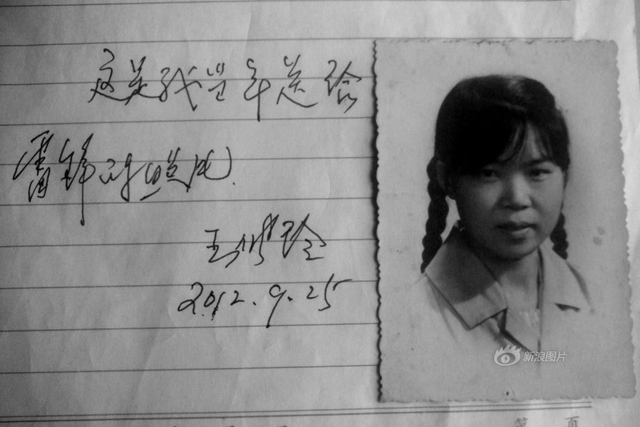 这是我当年送给
雷锋的照片.
王佩玲
2012.9.25
新浪图片
第 页